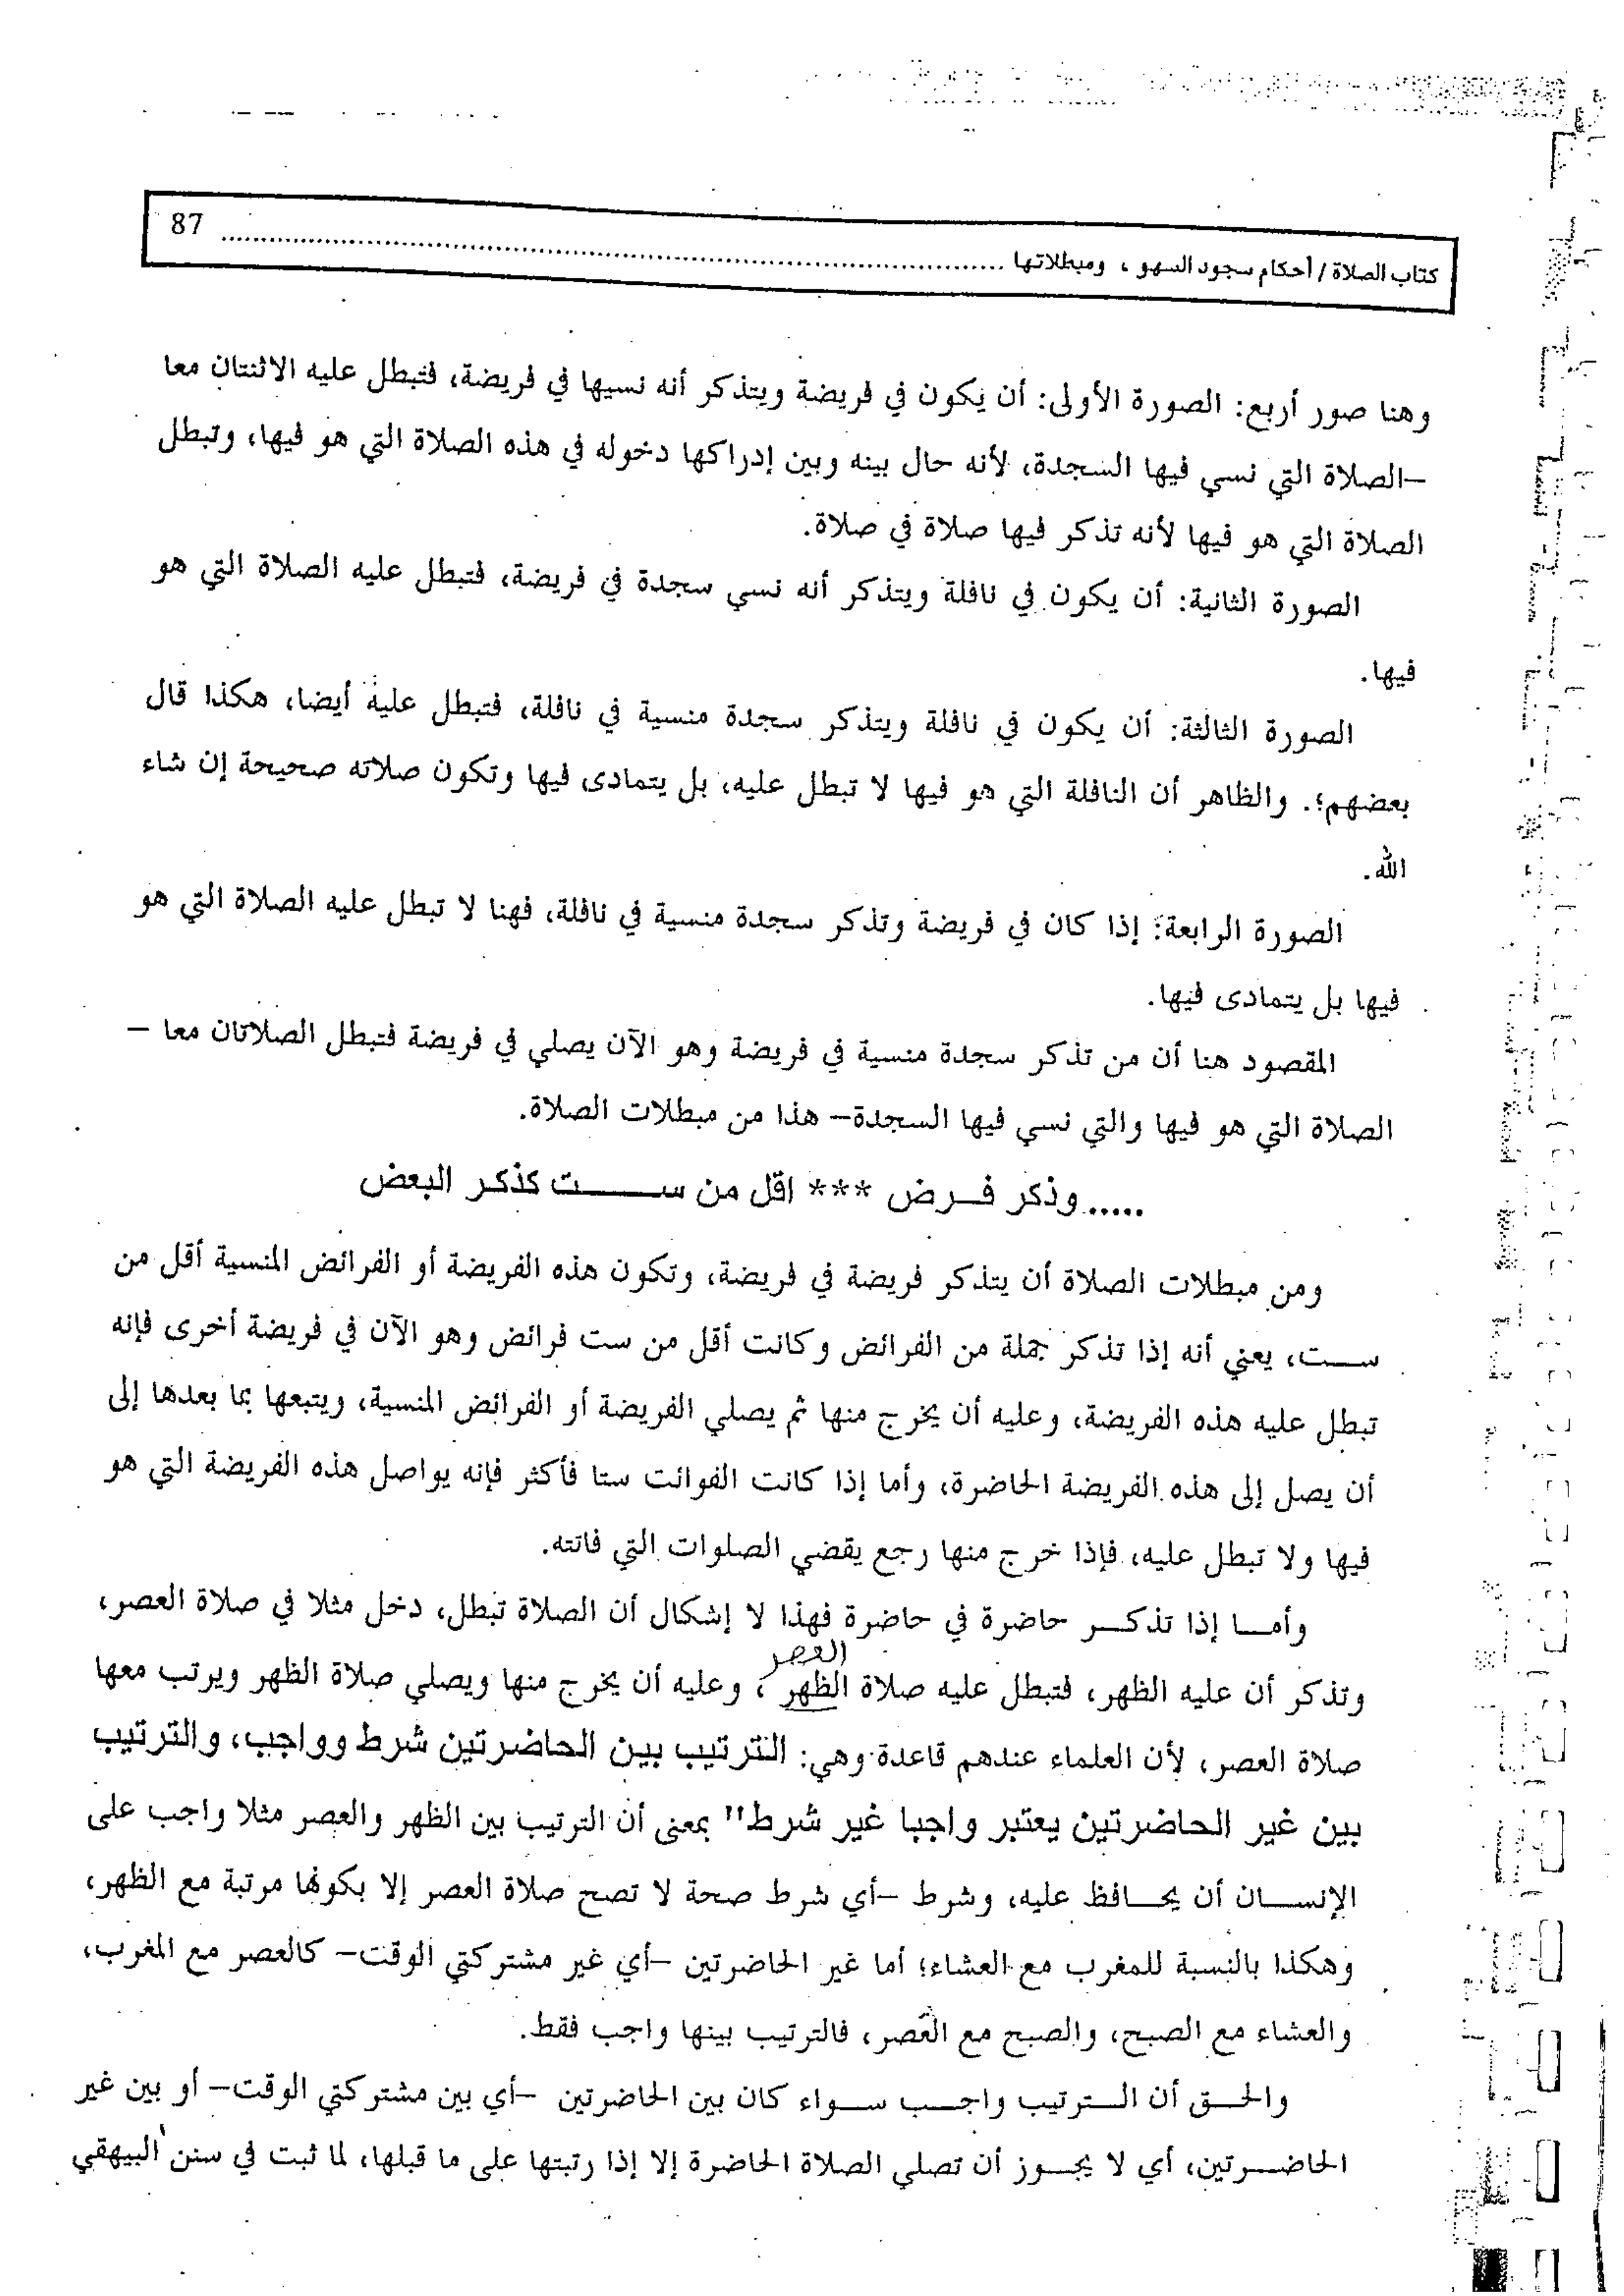 كتاب الصلاة / أحكام سجود السهو ، ومبطلاتها ........................................ 87
وهنا صور أربع: الصورة الأولى: أن يكون في فريضة ويتذكر أنه نسيها في فريضة، فتبطل عليه الاثنتان معا
–الصلاة التي نسي فيها السجدة، لأنه حال بينه وبين إدراكها دخوله في هذه الصلاة التي هو فيها، وتبطل
الصلاة التي هو فيها لأنه تذكر فيها صلاة في صلاة.
الصورة الثانية: أن يكون في نافلة ويتذكر أنه نسي سجدة في فريضة، فتبطل عليه الصلاة التي هو
فيها.
الصورة الثالثة: أن يكون في نافلة ويتذكر سجدة منسية في نافلة، فتبطل عليه أيضا، هكذا قال
بعضهم؛. والظاهر أن النافلة التي هو فيها لا تبطل عليه، بل يتمادى فيها وتكون صلاته صحيحة إن شاء
الله.
الصورة الرابعة: إذا كان في فريضة وتذكر سجدة منسية في نافلة، فهنا لا تبطل عليه الصلاة التي هو
فيها بل يتمادى فيها.
المقصود هنا أن من تذكر سجدة منسية في فريضة وهو الآن يصلي في فريضة فتبطل الصلاتان معا –
الصلاة التي هو فيها والتي نسي فيها السجدة– هذا من مبطلات الصلاة.
.....وذكر فـرض *** اقل من ســـت كذكر البعض
ومن مبطلات الصلاة أن يتذكر فريضة في فريضة، وتكون هذه الفريضة أو الفرائض المنسية أقل من
ست، يعني أنه إذا تذكر جملة من الفرائض وكانت أقل من ست فرائض وهو الآن في فريضة أخرى فإنه
تبطل عليه هذه الفريضة، وعليه أن يخرج منها ثم يصلي الفريضة أو الفرائض المنسية، ويتبعها بما بعدها إلى
أن يصل إلى هذه الفريضة الحاضرة، وأما إذا كانت الفوائت ستا فأكثر فإنه يواصل هذه الفريضة التي هو
فيها ولا تبطل عليه، فإذا خرج منها رجع يقضي الصلوات التي فاتته.
وأمـا إذا تذكـر حاضرة في حاضرة فهذا لا إشكال أن الصلاة تبطل، دخل مثلا في صلاة العصر،
العصر
وتذكر أن عليه الظهر، فتبطل عليه صلاة الظهر ، وعليه أن يخرج منها ويصلي صلاة الظهر ويرتب معها
صلاة العصر، لأن العلماء عندهم قاعدة وهي: الترتيب بين الحاضرتين شرط وواجب، والترتيب
بين غير الحاضرتين يعتبر واجبا غير شرط" بمعنى أن الترتيب بين الظهر والعصر مثلا واجب على
الإنسـان أن يحـافظ عليه، وشرط –أي شرط صحة لا تصح صلاة العصر إلا بكونها مرتبة مع الظهر،
وهكذا بالنسبة للمغرب مع العشاء؛ أما غير الحاضرتين –أي غير مشتركتي الوقت– كالعصر مع المغرب،
والعشاء مع الصبح، والصبح مع العصر، فالترتيب بينها واجب فقط.
والحـق أن الـترتيب واجـب سـواء كان بين الحاضرتين –أي بين مشتركتي الوقت– أو بين غير
الحاضـرتين، أي لا يجـوز أن تصلي الصلاة الحاضرة إلا إذا رتبتها على ما قبلها، لما ثبت في سنن البيهقي